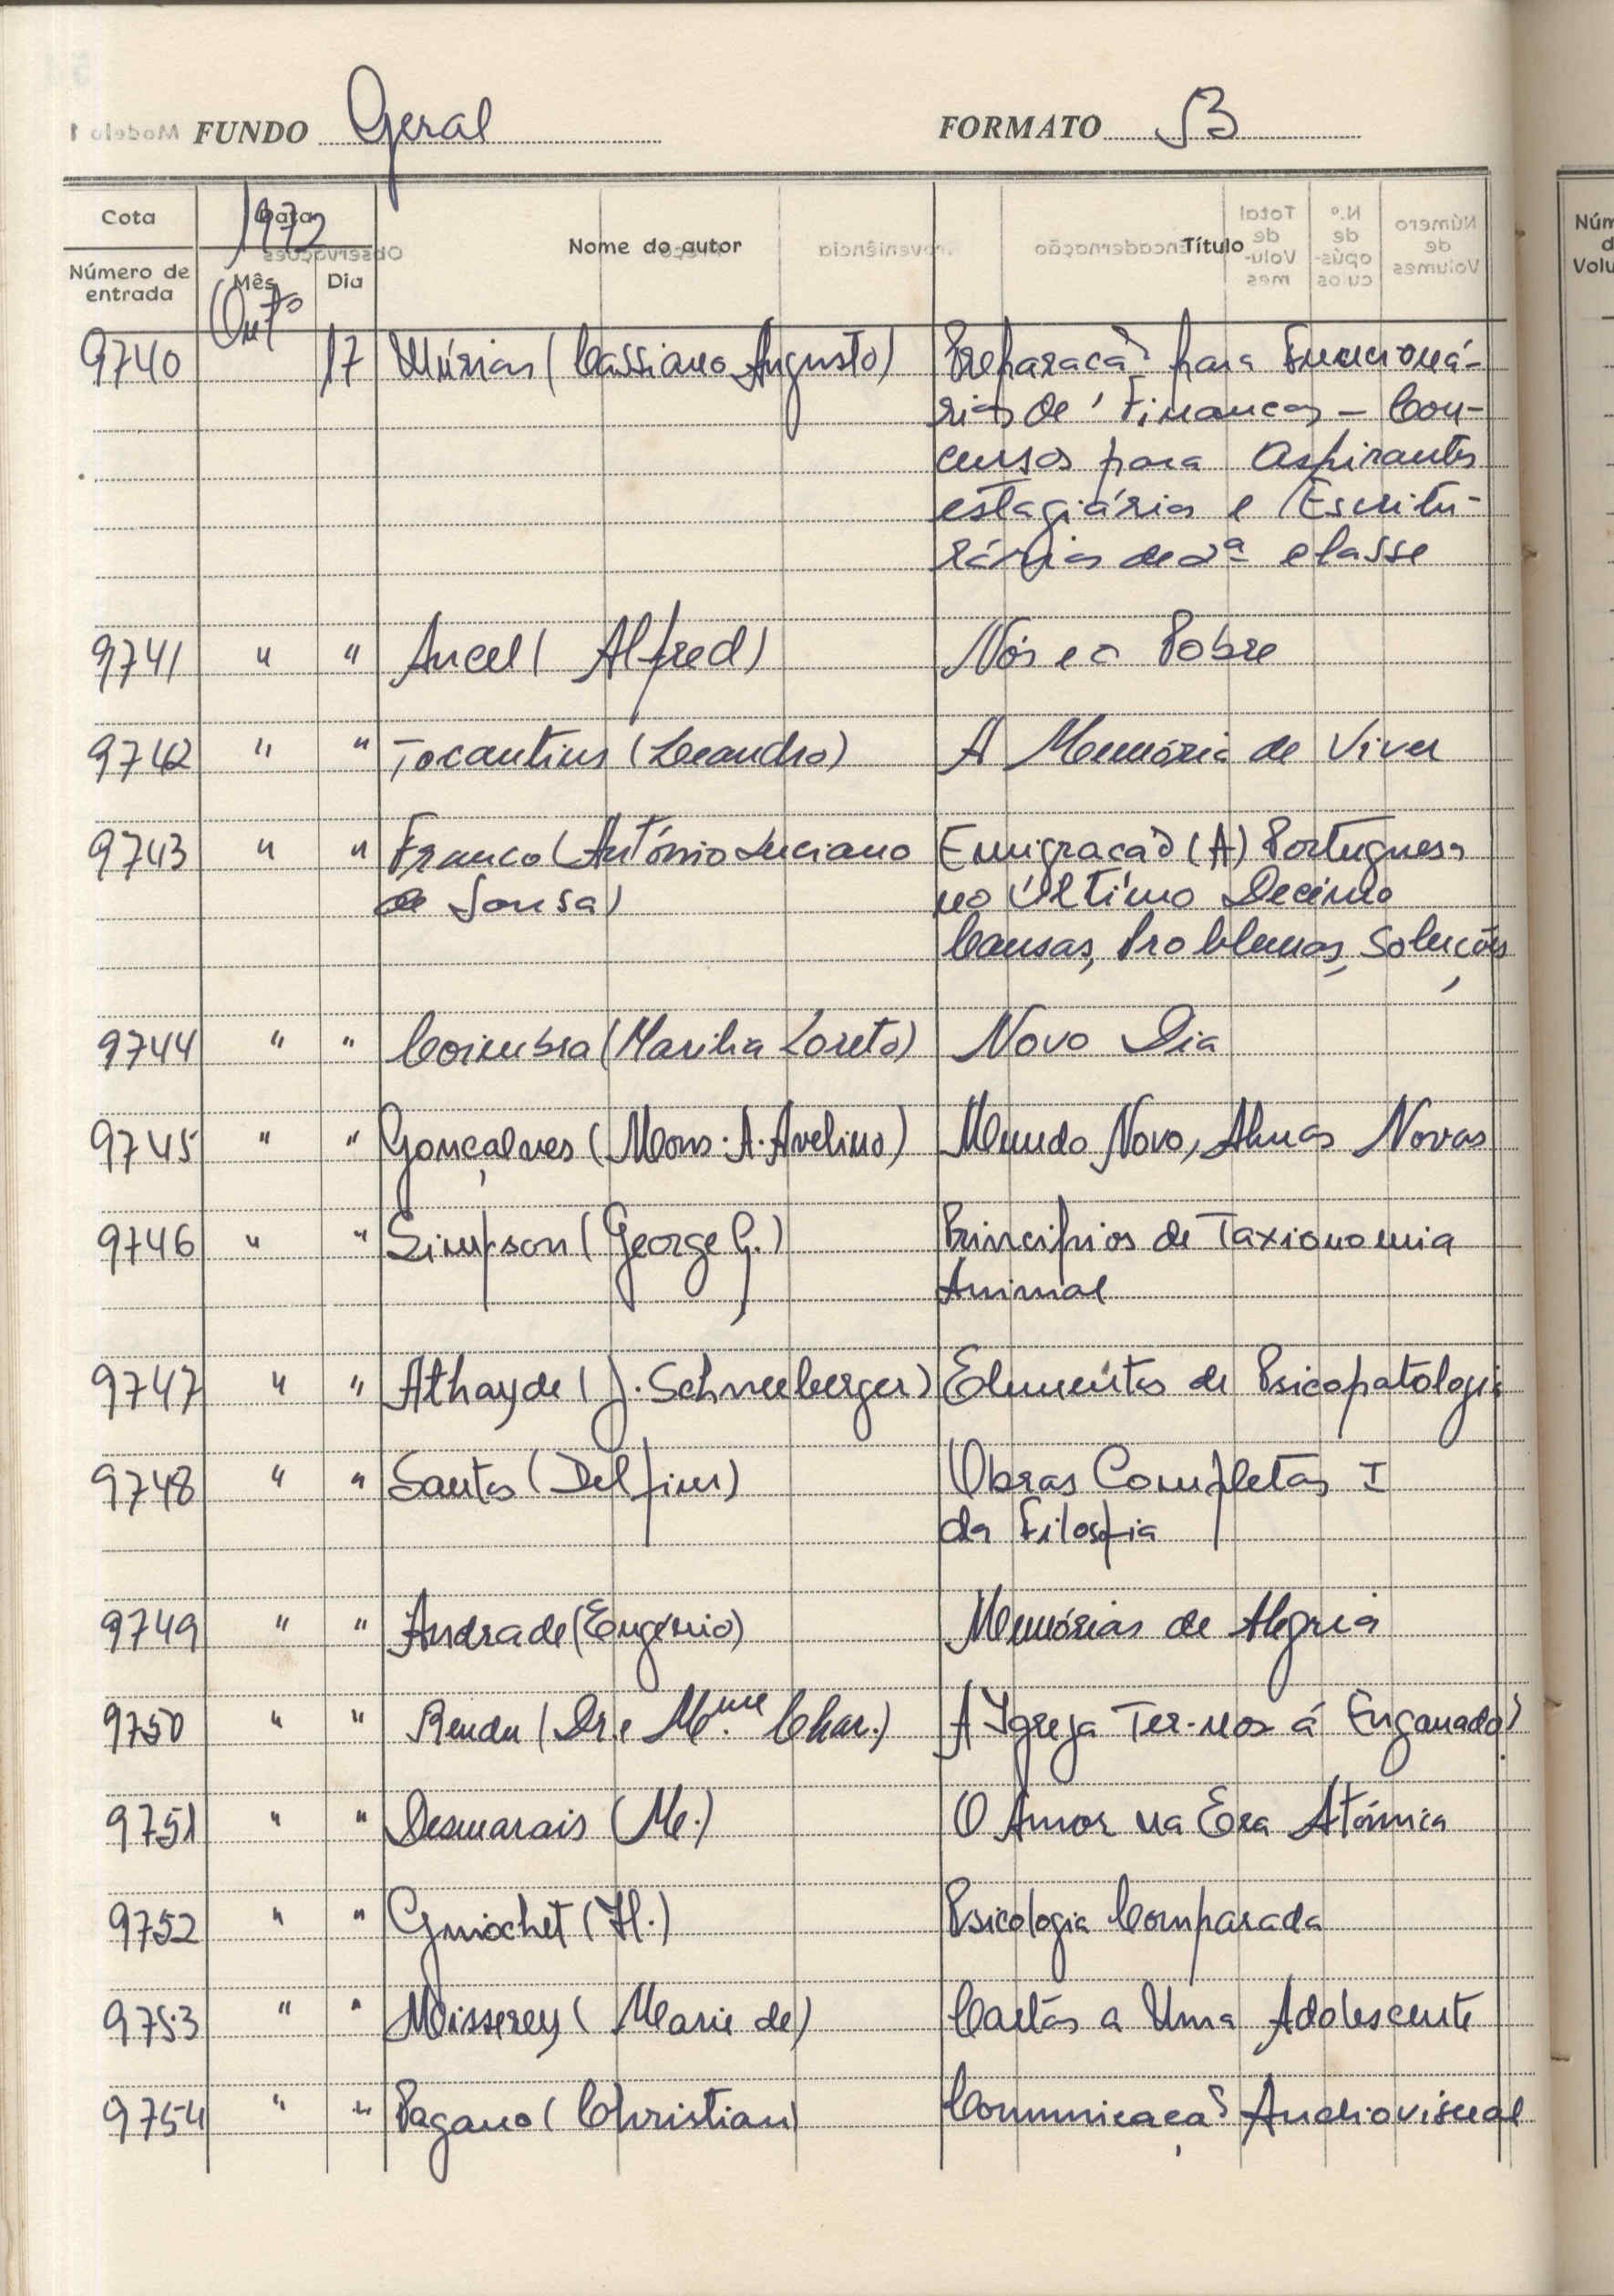 FUNDO Geral FORMATO B
Cota Data 1972 Nome do autor Título
Número de entrada Mês Dia
Outº
9740 17 Múrias (Cassiano Augusto) Preparação para Funcioná-
rios de Finanças - Con-
cursos para Aspirantes
estagiários e Escritu-
rários de 2ª classe
9741 " " Ancel (Alfred) Nós e o Pobre
9742 " " Tocantins (Leandro) A Memória de Viver
9743 " " Franco (António Luciano Emigração (A) Portuguesa
de Sousa) no Último Decénio
Causas, Problemas, Soluções
9744 " " Coimbra (Marilia Loreto) Novo Dia
9745 " " Gonçalves (Mons. A. Avelino) Mundo Novo, Almas Novas
9746 " " Simpson (George G.) Princípios de Taxionomia
Animal
9747 " " Athayde (J. Schneeberger) Elementos de Psicopatologia
9748 " " Santos (Delfim) Obras Completas I
da Filosofia
9749 " " Andrade (Eugénio) Memórias de Alegria
9750 " " Rendu (Dr. e Mme Char.) A Igreja Ter-nos á Enganado?
9751 " " Desmarais (M.) O Amor na Era Atómica
9752 " " Gmiochet (H.) Psicologia Comparada
9753 " " Misserey (Marie de) Cartas a Uma Adolescente
9754 " " Pagano (Christian) Comunicação Audiovisual